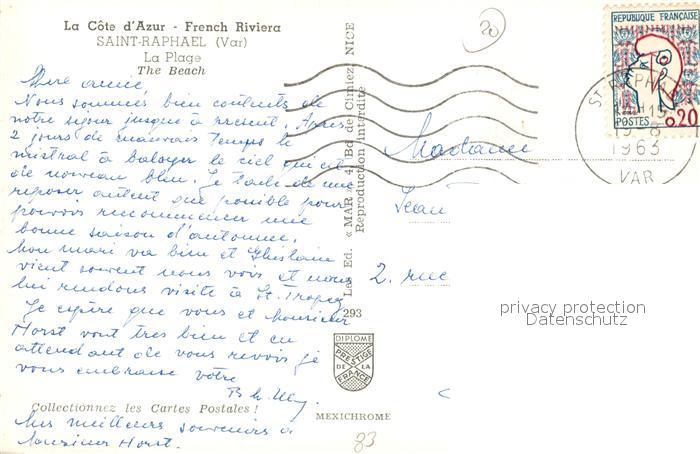 La Côte d'Azur - French Riviera
SAINT-RAPHAEL (Var)
La Plage
The Beach
Chère amie,
Nous sommes bien contents de
notre séjour jusque à présent. Après
2 jours de mauvais temps le
mistral à balayer le ciel qui est
de nouveau bleu. Je tache de me
reposer autent que possible pour
pouvoir recommencer une
bonne saison d'automne.
Mon mari va bien et Ghislain
vient souvent nous voir et nous
lui rendons visite à St. Tropez
Je espère que vous et Monsieur
Horst vont tres bien et en
attendant de vous revoir je
vous embrasse votre
Collectionnez les Cartes Postales !
Mes meilleurs souvenirs à
Monsieur Horst.
Les Ed. « MAR » 41 Bd de Cimiez NICE
Reproduction interdite
293
DIPLOME
PRESTIGE
DE LA
FRANCE
MEXICHROME
83
20
REPUBLIQUE FRANÇAISE
POSTES 0,20
ST-RAPHAEL
19-8
1963
VAR
Madame
Jean
2. rue
privacy protection
Datenschutz